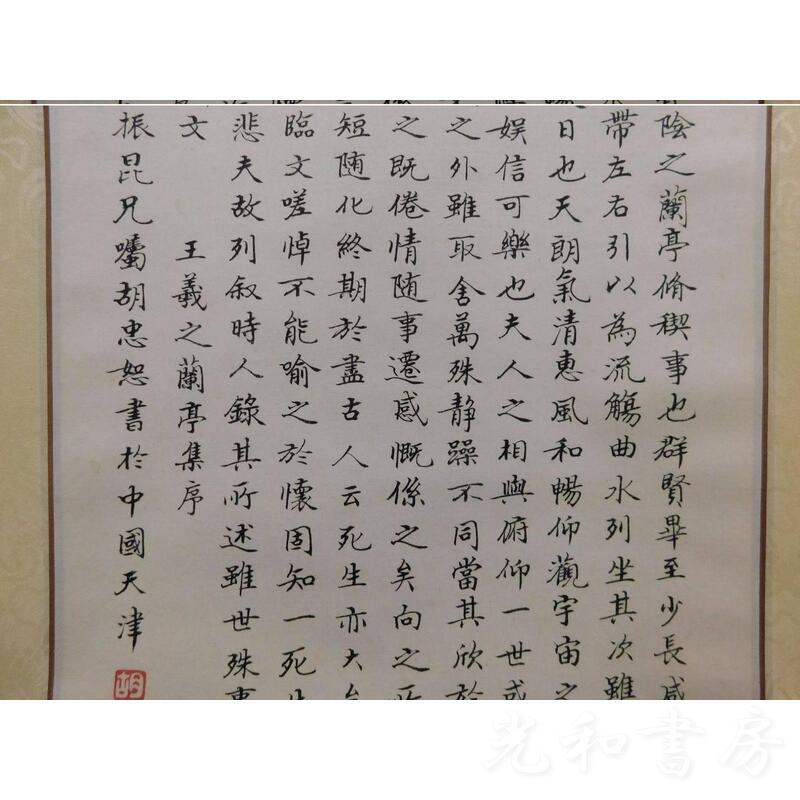 陰之蘭亭脩稧事也群賢畢至少長咸
帶左右引以為流觴曲水列坐其次雖
日也天朗氣清惠風和暢仰觀宇宙之
娛信可樂也夫人之相與俯仰一世或
之外雖取舍萬殊静躁不同當其欣於
之既倦情随事遷感慨係之矣向之所
短随化終期於盡古人云死生亦大矣
臨文嗟悼不能喻之於懷固知一死生
悲夫故列叙時人錄其所述雖世殊事
文
王羲之蘭亭集序
振昆兄囑胡忠恕書於中國天津
胡
光和書房